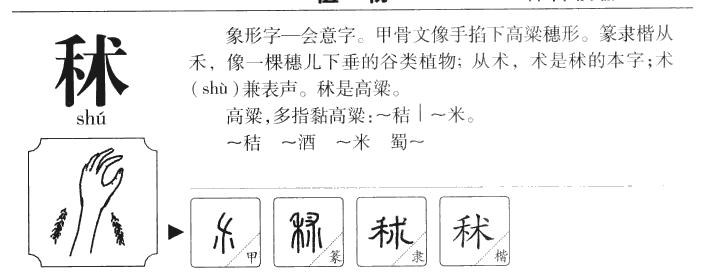 秫
shú
象形字—会意字。甲骨文像手掐下高粱穗形。篆隶楷从
禾，像一棵穗儿下垂的谷类植物；从术，术是秫的本字；术
（shù）兼表声。秫是高粱。
高粱，多指黏高粱：～秸｜～米。
～秸　～酒　～米　蜀～
甲
秫 篆
秫 隶
秫 楷